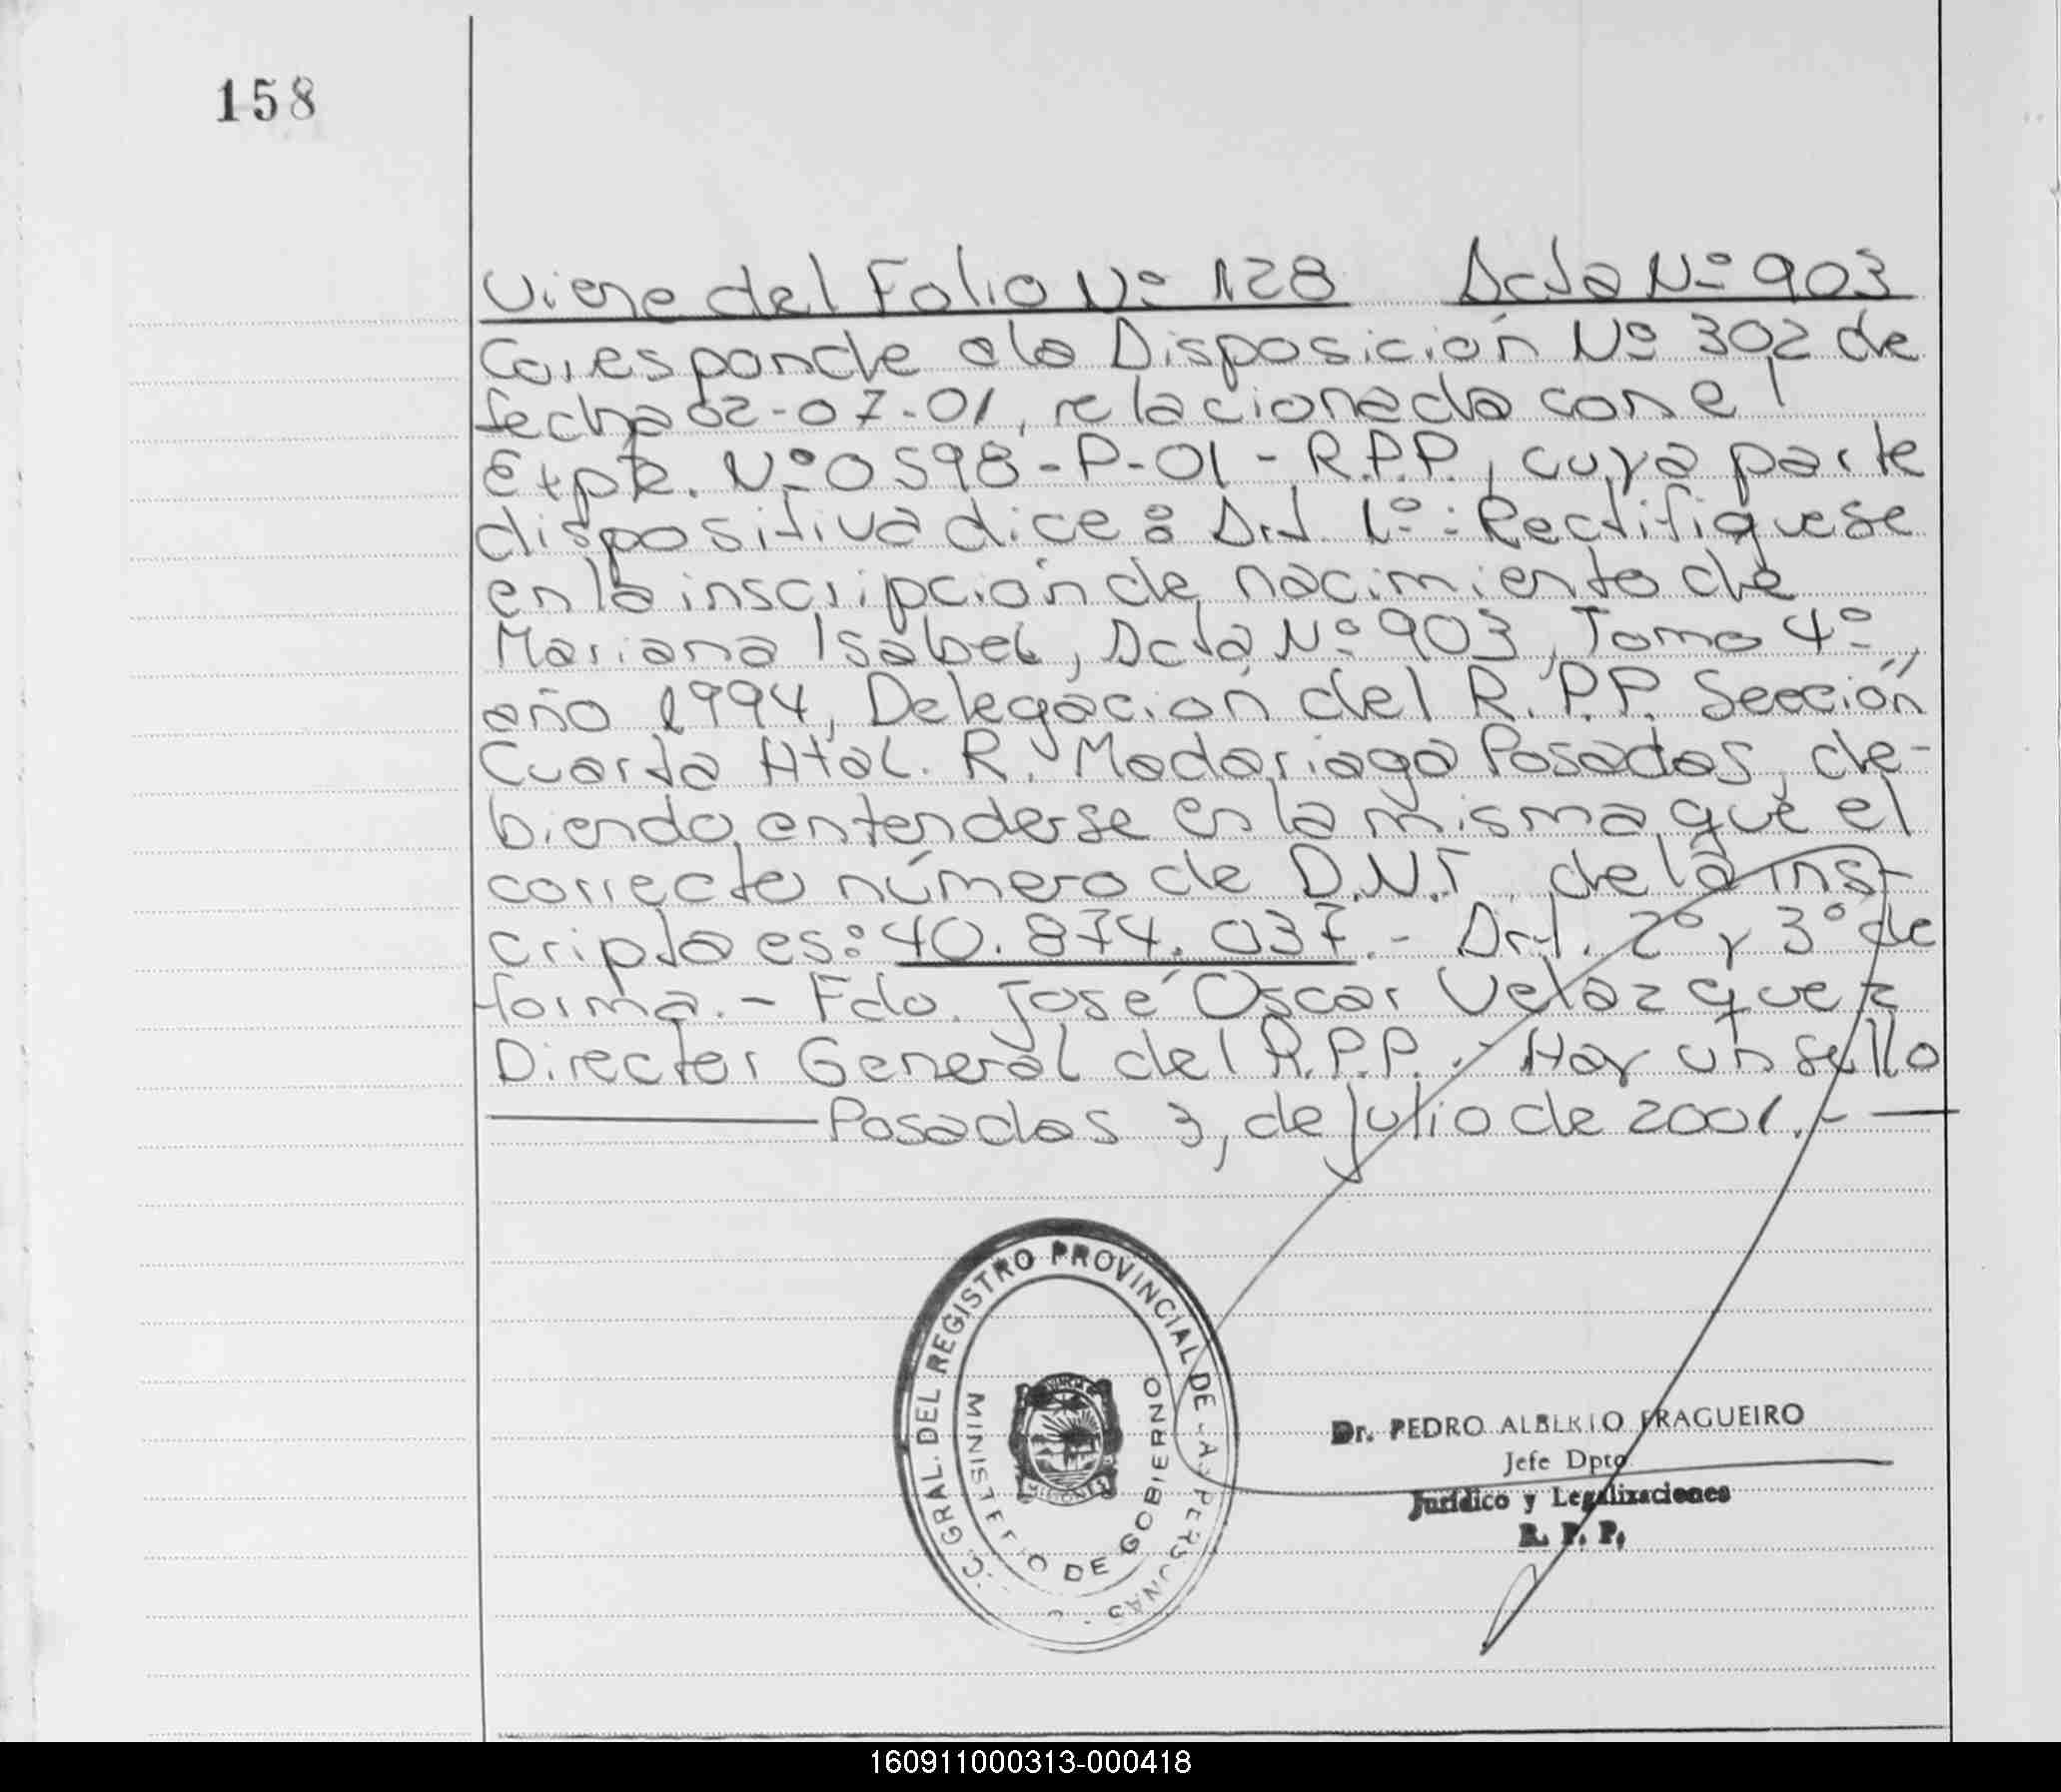 158
Viene del Folio Nº 128 Acta Nº 903
Corresponde a la Disposición Nº 302 de
fecha 02-07-01, relacionada con el
Expte. Nº 0598-P-01-R.P.P., cuya parte
dispositiva dice: Art 1º: Rectifiquese
en la inscripción de nacimiento de
Mariana Isabel, Acta Nº 903, Tomo 4º,
año 1994, Delegación del R.P.P. Sección
Cuarta Htal. R. Madariaga Posadas, de-
biendo entenderse en la misma que el
correcto número de D.N.I. de la ins-
cripta es: 40.874.037.- Art. 2º y 3º de
forma.- Fdo. José Oscar Velazquez
Director General del R.P.P.- Hay un sello
Posadas 3, de Julio de 2001.-
GRAL. DEL REGISTRO PROVINCIAL DE LAS PERSONAS
MINISTERIO DE GOBIERNO
Dr. PEDRO ALBERTO FRAGUEIRO
Jefe Dpto
Jurídico y Legalizaciones
R. P. P.
160911000313-000418